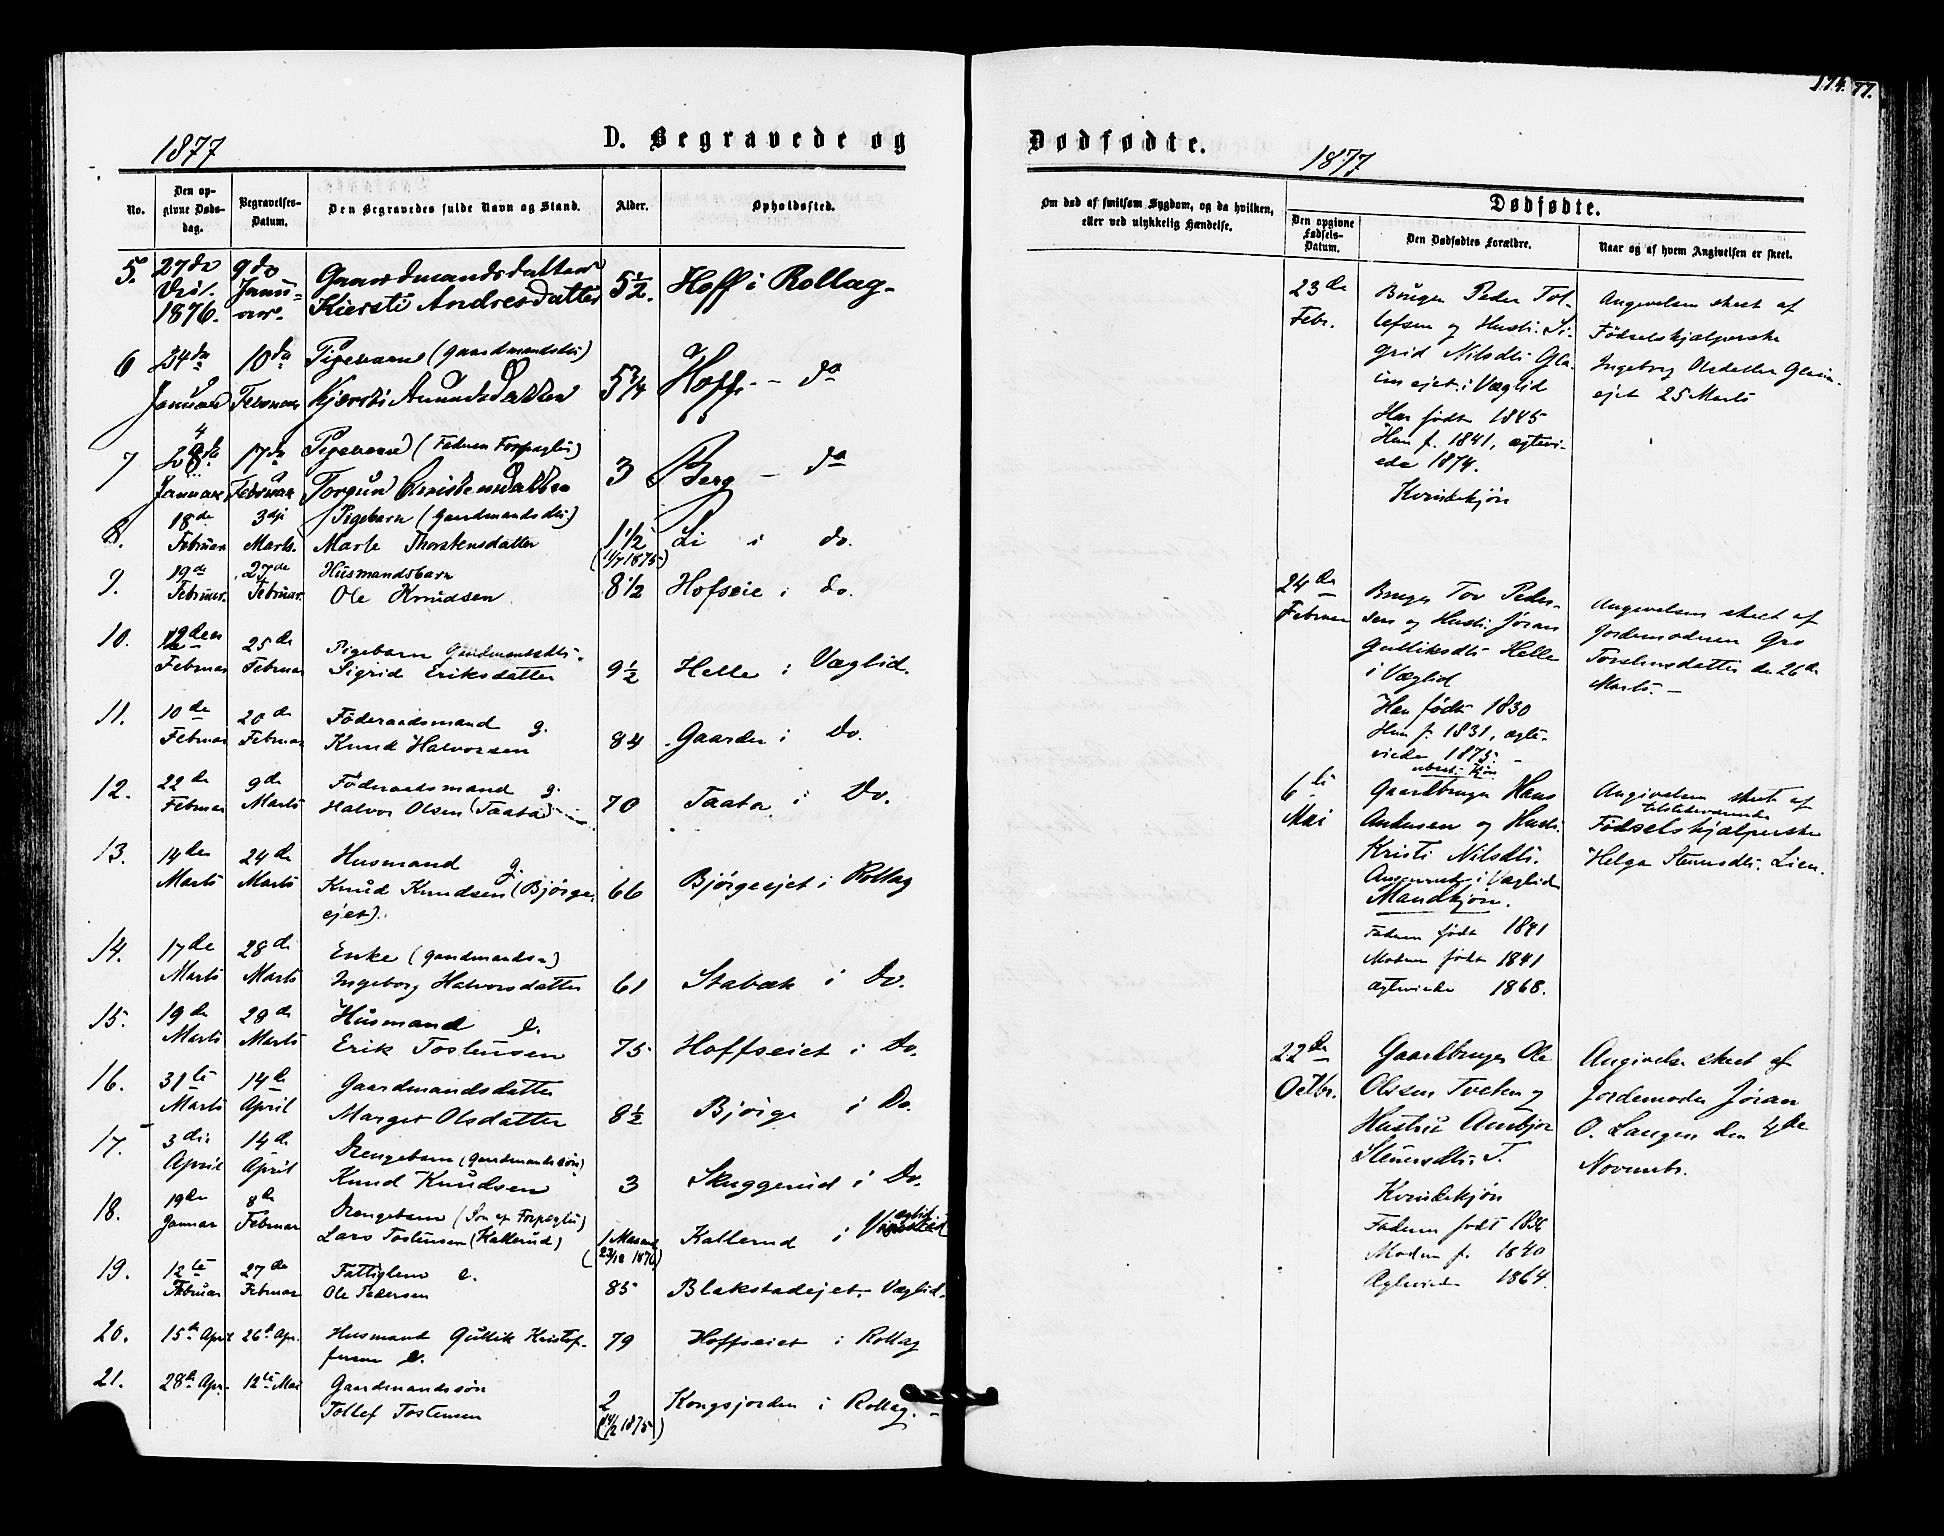 174. 77.
1877
D. Begravede og
Dødfødte.
1877
No.
Den opgivne Dødsdag.
Begravelses-Datum.
Den Begravedes fulde Navn og Stand.
Alder.
Opholdssted.
Om død af smitsom Sygdom, og da hvilken,
eller ved ulykkelig Hændelse.
Dødfødte.
Den opgivne Fødsels-Datum.
Den Dødfødtes Forældre.
Naar og af hvem Angivelsen er skeet.
5. 27de 1876. 9do Januar Gaardmandsdatter
Kiersti Andresdatter 5½. Hoff i Rollag
6 24de Januar 10de Februar Pigebarn (Gaardmandsdtr)
Kjersti Amundsdatter 5¾ Hoff - do
7 Januar 17de Februar Pigebarn (Faderen Forpagter)
Torgun Christensdatter 3 Berg - do
8. 18de Februar 3die Marts. Pigebarn (Gaardmandsdtr)
Marte Thorstensdatter 1½ (11/7 1875) Li i do.
9. 19de Februar. 27de Februar. Husmandsbarn
Ole Knudsen 8½ Hofseie i do.
10. Februar 25de Februar Pigebarn Gaardmandsdtr.
Sigrid Eriksdatter 9½ Helle i Væglid.
11. 10de Februar 20de Februar Föderaadsmand g.
Knud Halvorsen 84 Gaarden i Do.
12. 22de Februar 9de Marts Föderaadsmand g.
Halvor Olsen (Taata) 70 Taata i Do.
13. 14de Marts 24de Marts Husmand g.
Knud Knudsen (Bjørge-
ejet). 66 Bjørgeejet i Rollag
14. 17de Marts 28de Marts Enke (Gaardmands-)
Ingeborg Halvorsdatter 61 Stabæk i Do.
15. 19de Marts 28de Marts Husmand e.
Erik Tostensen 75 Hoffseiet i Do.
16. 31te Marts 14de April Gaardmandsdatter
Marget Olsdatter 8½ Bjørge i Do.
17. 3die April 14de April Drengebarn (Gaardmandssön)
Knud Knudsen 3 Skuggerud i Do.
18. 19de Januar 8de Februar Drengebarn (Søn af Forpagter)
Lars Tostensen (Kallerud) 1 Maaned (23/12 1876) Kallerud i Væglid
19. 12te Februar 27de Februar Fattiglem e.
Ole Pedersen 85 Blakstadejet. Væglid.
20. 15de April 26de Apr. Husmand Gullik Kristof-
fersen e. 79 Hoffseiet i Rollag
21. 28de Apr. 12te Mai Gaardmandssön
Tollef Tostensen 2 (14/2 1875) Kongsjorden i Rollag.
23de Febr.
Bruger Peder Tol-
lefsen og Hustr. Si-
grid Nilsdtr. Gla-
im ejet i Væglid
Han født 1845
Hun f. 1841, ægtevi-
ede 1874.
Kvindekjøn
Angivelsen skeet af
Fødselshjælperske
Ingeborg Olsdatter Glaim-
ejet 25 Marts
24de Februar
Bruger Tov Peder-
sen og Hustr. Jöran
Gulliksdtr. Helle
i Væglid
Han født 1830
Hun f. 1831, ægte-
viede 1875.
Angivelsen skeet af
Jordemoderen Gro
Torstensdatter de 26de
Marts. -
6te Mai
Gaardbruger Hans
Andersen og Hustr.
Kristi Nilsdtr.
i Væglid
Mandkjøn.
Faderen født 1841
Moderen født 1841
Ægteviede 1868.
Angivelsen skeet af
tilstedeværende
Fødselshjælperske
Helga Steensdtr. Lien.
22de Octbr.
Gaardbruger Ole
Olsen Tveten og
Hustru Annbjør
Steensdtr. T.
Kvindekjøn
Faderen født
Moderen f. 1840
Ægteviede 1864.
Angivelse skeet af
Jordemoder Jøran
O. Langen den 4de
Novembr.